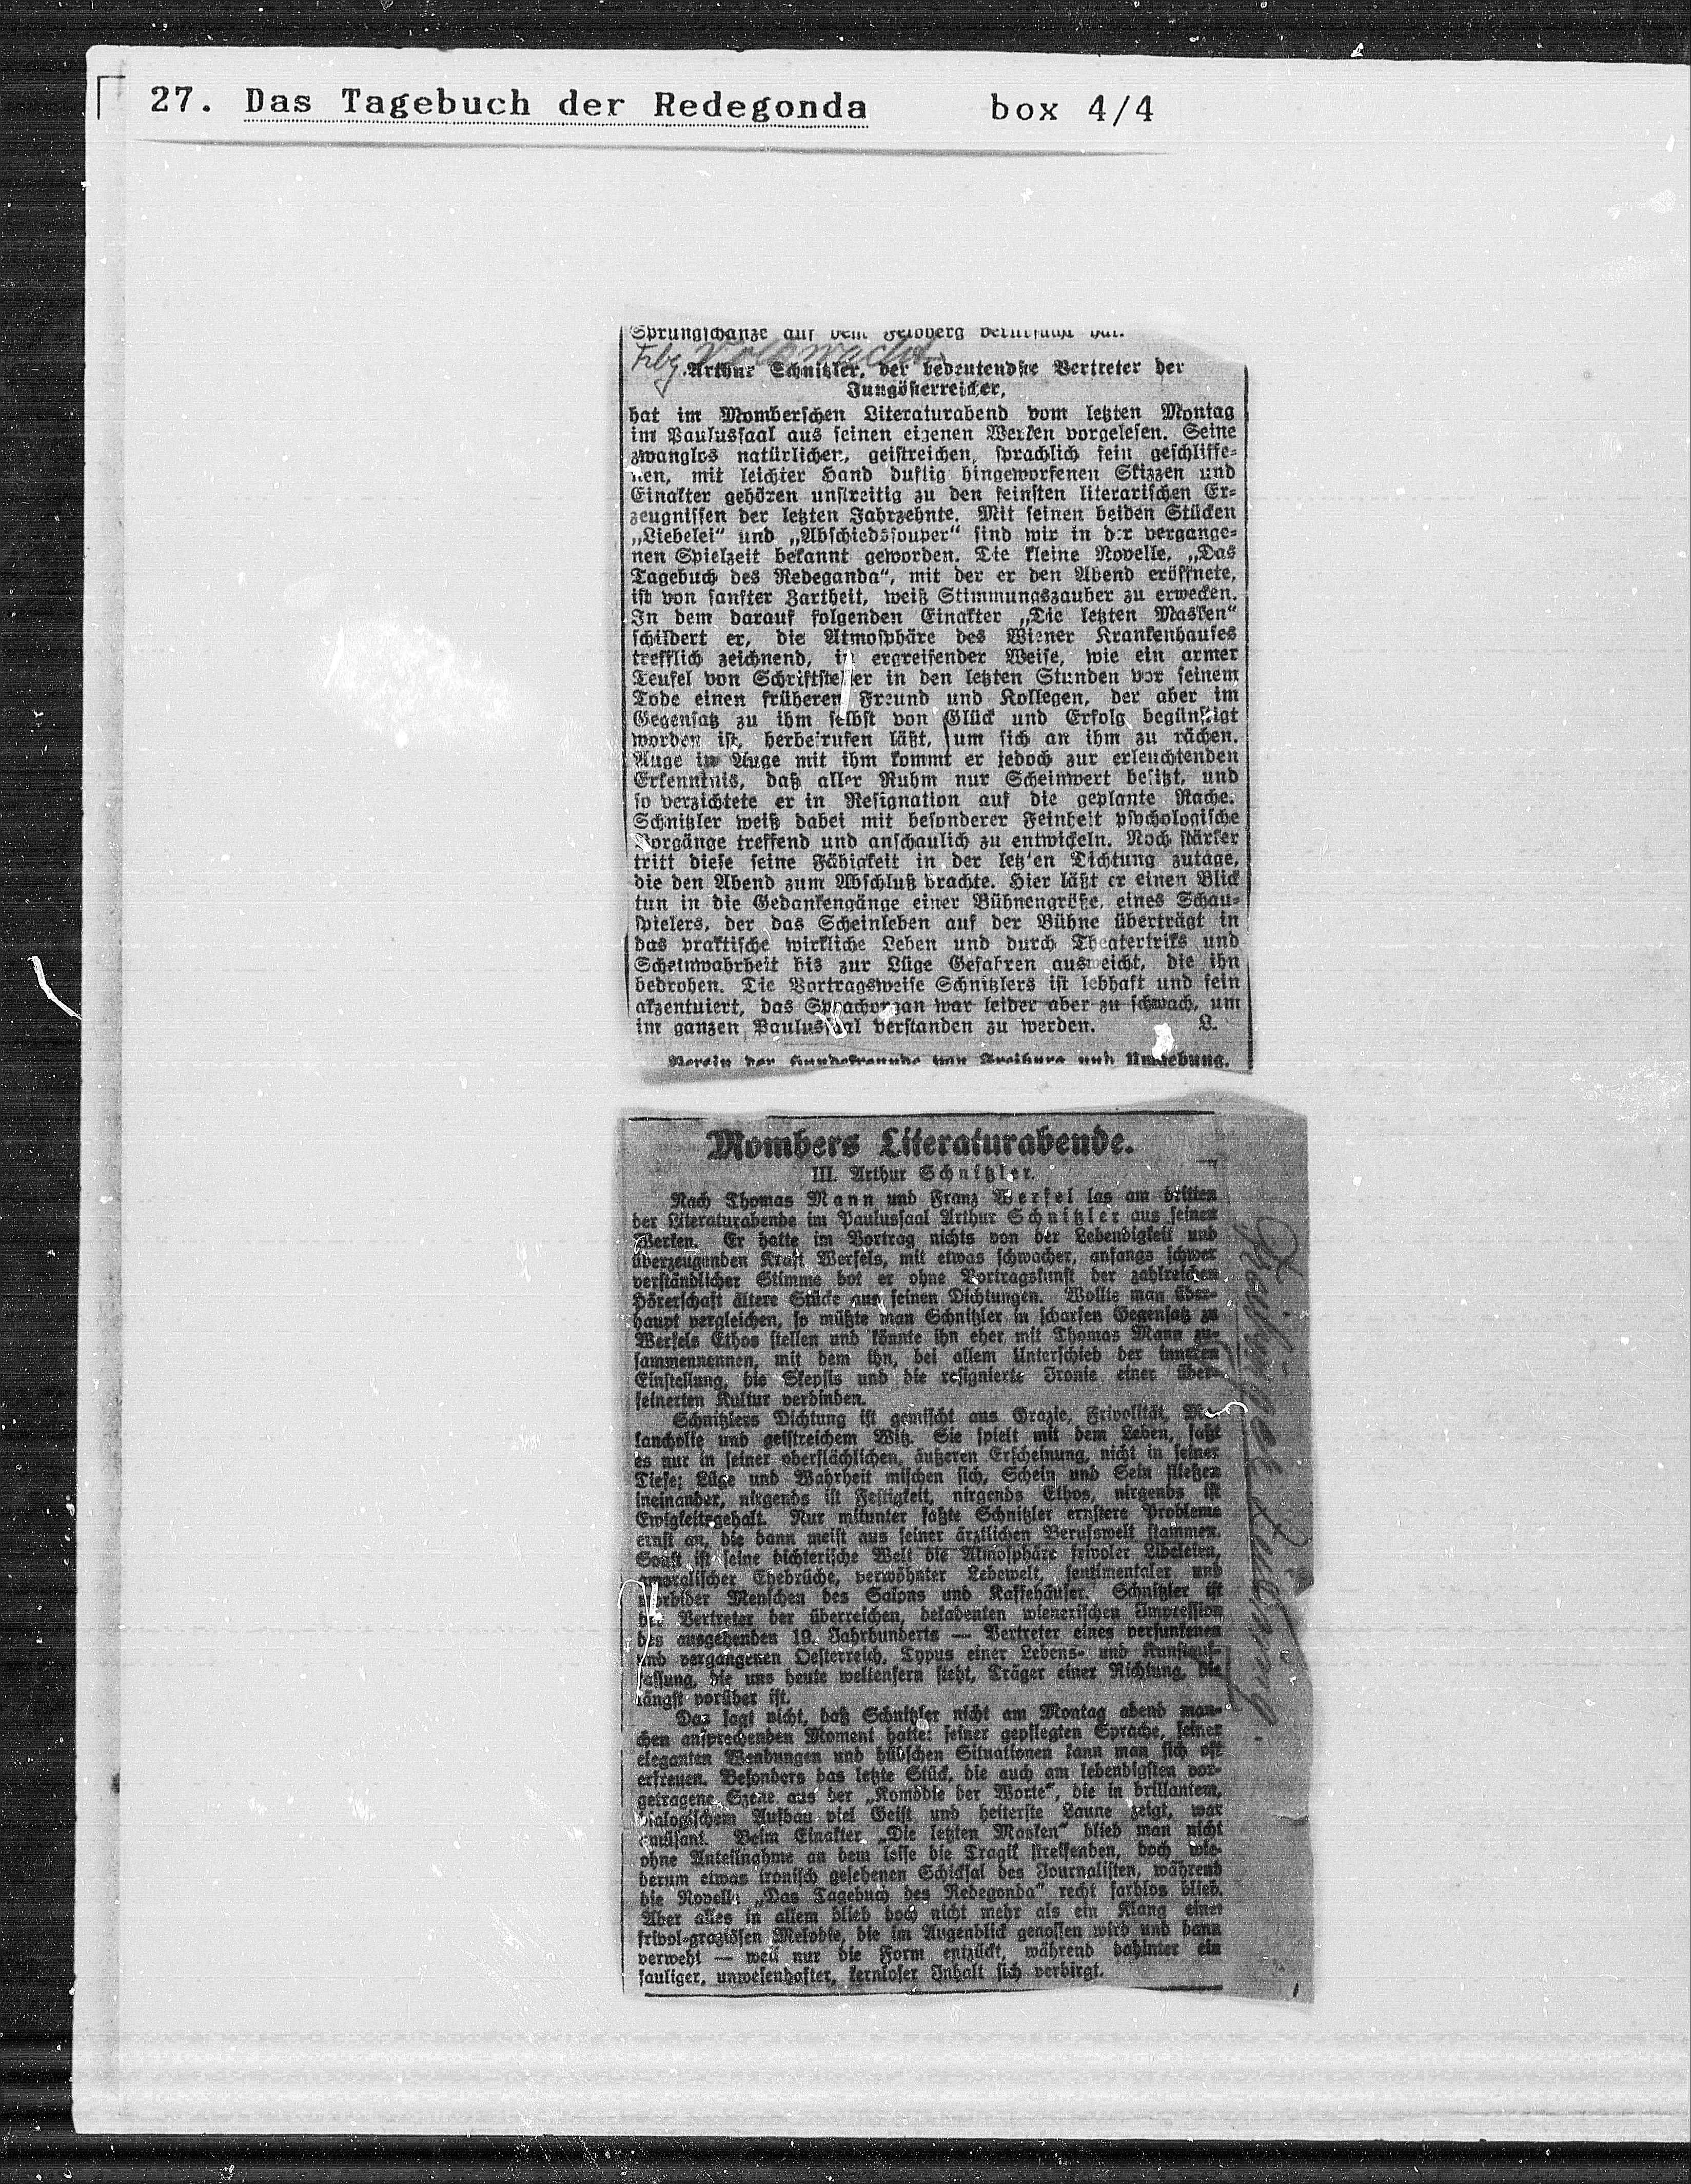 27. Das Tagebuch der Redegonda box 4/4
Sprungschanze auf dem Feldberg verursacht hat.
Frbg. Volkswacht
Arthur Schnitzler, der bedeutendste Vertreter der
Jungösterreicher,
hat im Momberschen Literaturabend vom letzten Montag
im Paulussaal aus seinen eigenen Werken vorgelesen. Seine
zwanglos natürlichen, geistreichen, sprachlich fein geschliffe-
nen, mit leichter Hand duftig hingeworfenen Skizzen und
Einakter gehören unstreitig zu den feinsten literarischen Er-
zeugnissen der letzten Jahrzehnte. Mit seinen beiden Stücken
„Liebelei“ und „Abschiedssouper“ sind wir in der vergange-
nen Spielzeit bekannt geworden. Die kleine Novelle, „Das
Tagebuch des Redeganda“, mit der er den Abend eröffnete,
ist von sanfter Zartheit, weiß Stimmungszauber zu erwecken.
In dem darauf folgenden Einakter „Die letzten Masken“
schildert er, die Atmosphäre des Wiener Krankenhauses
trefflich zeichnend, in ergreifender Weise, wie ein armer
Teufel von Schriftsteller in den letzten Stunden vor seinem
Tode einen früheren Freund und Kollegen, der aber im
Gegensatz zu ihm selbst von Glück und Erfolg begünstigt
worden ist, herbeirufen läßt, um sich an ihm zu rächen.
Auge in Auge mit ihm kommt er jedoch zur erleuchtenden
Erkenntnis, daß aller Ruhm nur Scheinwert besitzt, und
so verzichtete er in Resignation auf die geplante Rache.
Schnitzler weiß dabei mit besonderer Feinheit psychologische
Vorgänge treffend und anschaulich zu entwickeln. Noch stärker
tritt diese seine Fähigkeit in der letzten Dichtung zutage,
die den Abend zum Abschluß brachte. Hier läßt er einen Blick
tun in die Gedankengänge einer Bühnengröße, eines Schau-
spielers, der das Scheinleben auf der Bühne überträgt in
das praktische wirkliche Leben und durch Theatertriks und
Scheinwahrheit bis zur Lüge Gefahren ausweicht, die ihn
bedrohen. Die Vortragsweise Schnitzlers ist lebhaft und fein
akzentuiert, das Sprachorgan war leider aber zu schwach, um
im ganzen Paulussaal verstanden zu werden. L.
Verein der Hundefreunde von Freiburg und Umgebung.
Mombers Literaturabende.
III. Arthur Schnitzler.
Nach Thomas Mann und Franz Werfel las am dritten
der Literaturabende im Paulussaal Arthur Schnitzler aus seinen
Werken. Er hatte im Vortrag nichts von der Lebendigkeit und
überzeugenden Kraft Werfels, mit etwas schwacher, anfangs schwer
verständlicher Stimme bot er ohne Vortragskunst der zahlreichen
Hörerschaft ältere Stücke aus seinen Dichtungen. Wollte man über-
haupt vergleichen, so müßte man Schnitzler in scharfen Gegensatz zu
Werfels Ethos stellen und könnte ihn eher mit Thomas Mann zu-
sammennennen, mit dem ihn, bei allem Unterschied der inneren
Einstellung, die Skepsis und die resignierte Ironie einer über-
feinerten Kultur verbinden.
Schnitzlers Dichtung ist gemischt aus Grazie, Frivolität, Me-
lancholie und geistreichem Witz. Sie spielt mit dem Leben, faßt
es nur in seiner oberflächlichen, äußeren Erscheinung, nicht in seiner
Tiefe; Lüge und Wahrheit mischen sich, Schein und Sein fließen
ineinander, nirgends ist Festigkeit, nirgends Ethos, nirgends ist
Ewigkeitsgehalt. Nur mitunter faßte Schnitzler ernstere Probleme
ernst an, die dann meist aus seiner ärztlichen Berufswelt stammen.
Sonst ist seine dichterische Welt die Atmosphäre frivoler Libeleien,
amoralischer Ehebrüche, verwöhnter Lebewelt, sentimentaler und
morbider Menschen des Salons und Kaffehäuser. Schnitzler ist
der Vertreter der überreichen, dekadenten wienerischen Impression
des ausgehenden 19. Jahrhunderts — Vertreter eines versunkenen
und vergangenen Oesterreich, Typus einer Lebens- und Kunstauf-
fassung, die uns heute weltenfern steht, Träger einer Richtung, die
längst vorüber ist.
Das sagt nicht, daß Schnitzler nicht am Montag abend man-
chen ansprechenden Moment hatte: seiner gepflegten Sprache, seiner
eleganten Wendungen und hübschen Situationen kann man sich oft
erfreuen. Besonders das letzte Stück, die auch am lebendigsten vor-
getragene Szene aus der „Komödie der Worte“, die in brillantem,
dialogischem Aufbau viel Geist und heiterste Laune zeigt, war
amüsant. Beim Einakter „Die letzten Masken“ blieb man nicht
ohne Anteilnahme an dem leise die Tragik streifenden, doch wie-
derum etwas ironisch gesehenen Schicksal des Journalisten, während
die Novelle „Das Tagebuch des Redegonda“ recht farblos blieb.
Aber alles in allem blieb doch nicht mehr als ein Klang einer
frivol-graziösen Melodie, die im Augenblick genossen wird und dann
verweht — weil nur die Form entzückt, während dahinter ein
fauliger, unwesenhafter, kernloser Inhalt sich verbirgt.
Freiburger Zeitung.